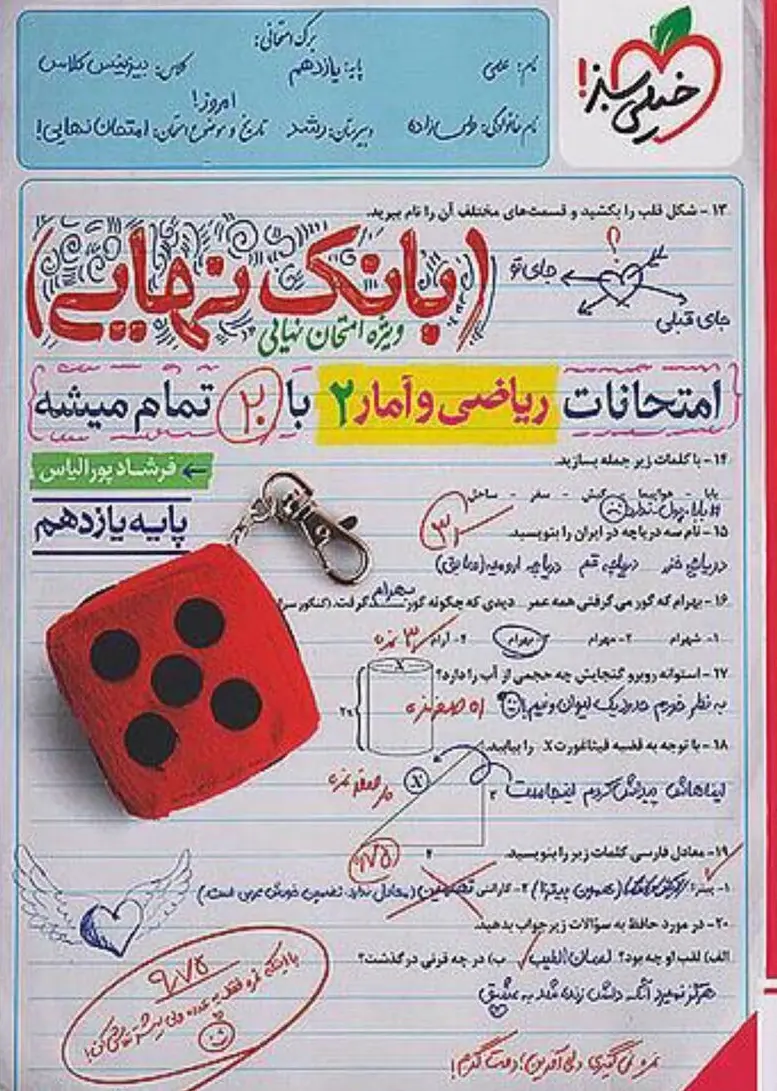 خیلی سبز!
برگه امتحانی:
نام: علی
پایه: یازدهم
کلاس: بیزینس کلاس
امروز!
نام خانوادگی: عباس‌زاده
دبیرستان: رشد
تاریخ و موضوع امتحان: امتحان نهایی!
۱۳- شکل قلب را بکشید و قسمت‌های مختلف آن را نام ببرید.
؟
جای تو
جای قبلی
(بانک نهایی)
ویژه امتحان نهایی
امتحانات ریاضی و آمار ۲ با ۲۰ تمام میشه
فرشاد پورالیاس
پایه یازدهم
۱۴- با کلمات زیر جمله بسازید.
بابا - هواپیما - کیش - سفر - ساحل
#بابا_پول_ندارد
۱۵- نام سه دریاچه در ایران را بنویسید.
۳
دریاچه خزر دریاچه قم دریاچه ارومیه (سابق)
۱۶- بهرام که گور می گرفتی همه عمر دیدی که چگونه گور بهرام گرفت. (کنکور سراسری)
۱- شهرام ۲- مهرام ۳- بهرام ۴- آرام
۳ نمره
۱۷- استوانه روبرو گنجایش چه حجمی از آب را دارد؟
X
۲x
به نظر خودم حدود یک لیوان و نیم!
۱۸- با توجه به قضیه فیثاغورث X را بیابید.
X
۳
۴
ایناهاش پیداش کردم اینجاست
۱۹- معادل فارسی کلمات زیر را بنویسید.
۱- پیتزا: (همون پیتزا) ۲- گارانتی: تضمین (معادل ندارد. تضمین خودش عربی است.)
۲۰- در مورد حافظ به سؤالات زیر جواب بدهید.
الف) لقب او چه بود؟ لسان الغیب ب) در چه قرنی درگذشت؟
هرگز نمیرد آنکه دلش زنده شد به عشق
۹/۷۵